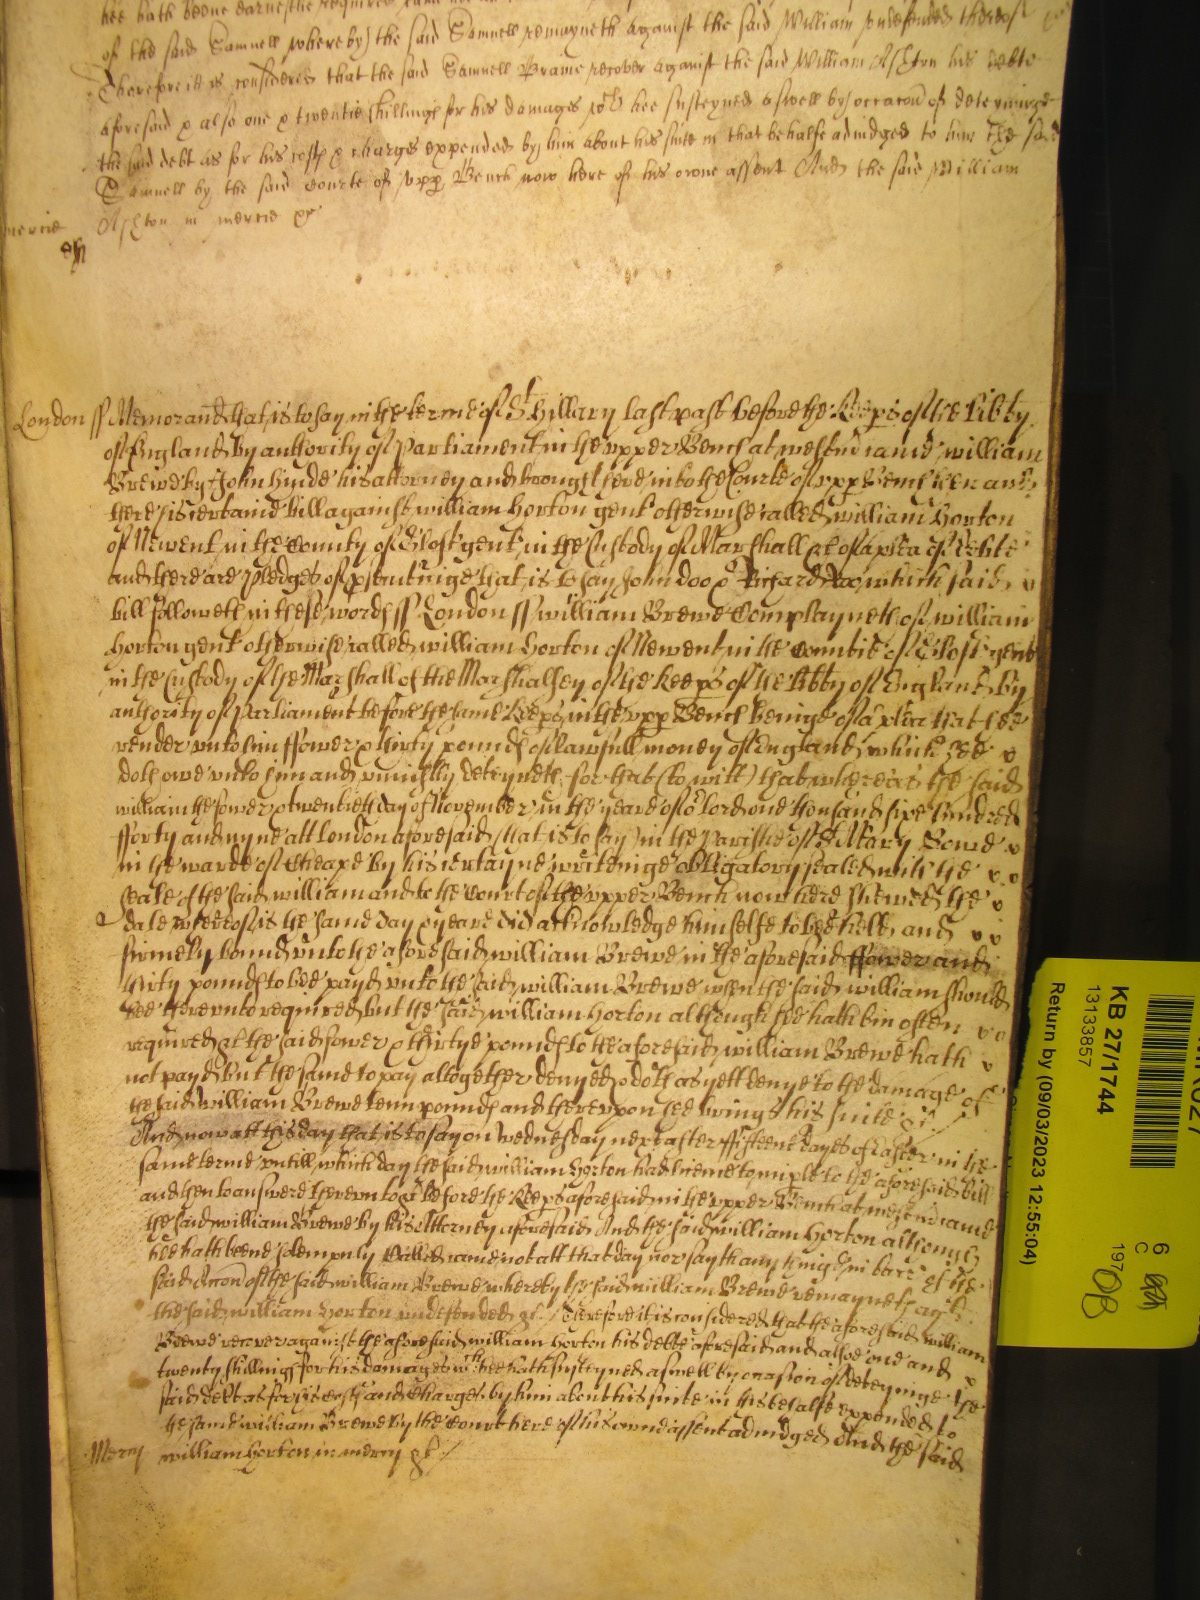 hee hath beene earnestlie required
of the said Samuell whereby the said Samuell remayneth against the said William undefended thereof
Therefore it is considered that the said Samuell Brame recover against the said William Ashton his debte
aforesaid & also one & twentie shillings for his damages wch hee susteyned aswell by occacon of deteyninge
the said debt as for his costs & charges expended by him about his suite in that behalfe adiudged to him the said
Samuell by the said Courte of upp Bench now here of his owne assent And the said William
mercie Ashton in mercie &c
London ss Memorand that is to say in the terme of St Hillary last past before the Keeps of the libty
of England by authority of Parliament in the upper Bench at Westm came william
Brewe by John Hynde his attorney and brought here into the Courte of upp Bench then and
there his certaine bill against william Horton gent otherwise called william Horton
of Newent in the County of Glost gent in the Custody of Marshall &c of a plea of debte
and there are pledges of psecutinge that is to say John doo & Richard Roo which said
bill followeth in these words ss London ss william Brewe Complayneth of william
Horton gent otherwise called william Horton of Newent in the Countie of Glost gent
in the Custody of the Marshall of the Marshalsey of the Keeps of the libty of England by
authority of Parliament before the same Keeps in the upp Bench beinge of a plea that hee
render unto him ffower & thirty pounds of lawfull money of England which hee
doth owe unto him and uniustly deteyneth for that (to witt) that whereas the said
william the fower & twentieth day of November in the yeare of or lord one thousand six hundred
fforty and nyne att London aforesaid (that is to say) in the Parishe of St Mary Bowe
in the warde of Cheape by his certayne writeinge obligatory sealed with the
seale of the said william and to the Court of the upper Bench now here shewed the
date whereof is the same day & yeare did acknowledge himselfe to bee held and
firmely bound unto the aforesaid william Brewe in the aforesaid ffower and
thirty pounds to bee payd unto the said william Brewe when the said william should
bee thereunto required but the said william Horton although hee hath bin often
required &c the said fower & thirtye pounds to the aforesaid william Brewe hath
not payd but the same to pay altogether denyed & doth as yett denye to the damage of
the said william Brewe tenn pounds and thereupon hee brings his suite &c
And now att this day that is to say on Wednesday next after ffifteene dayes of Easter in the
same terme untill which day the said william Horton had licence to imple to the aforesaid bill
and then to answere thereunto &c before the Keeps aforesaid in the upper Bench at Westm came
the said william Brewe by his Attorney aforesaid And the said william Horton although
hee hath beene solempnly Called came not att that day nor sayth any thinge in barr of the
said Accon of the said william Brewe whereby the said william Brewe remayneth agt
the said william Horton undefended &c Therefore it is considered that the aforesaid william
Brewe recover against the aforesaid william Horton his debte aforesaid and alsoe one and
twenty shillings for his damages wch hee hath susteyned aswell by occasion of deteyninge the
said debt as for his costs and charges by him about his suite in this behalfe expended to
the same william Brewe by the Court here of his owne assent adiudged And the said
Mercy william Horton in mercy &c
KB 27/1744
13133857
Return by (09/03/2023 12:55:04)
6
C
197